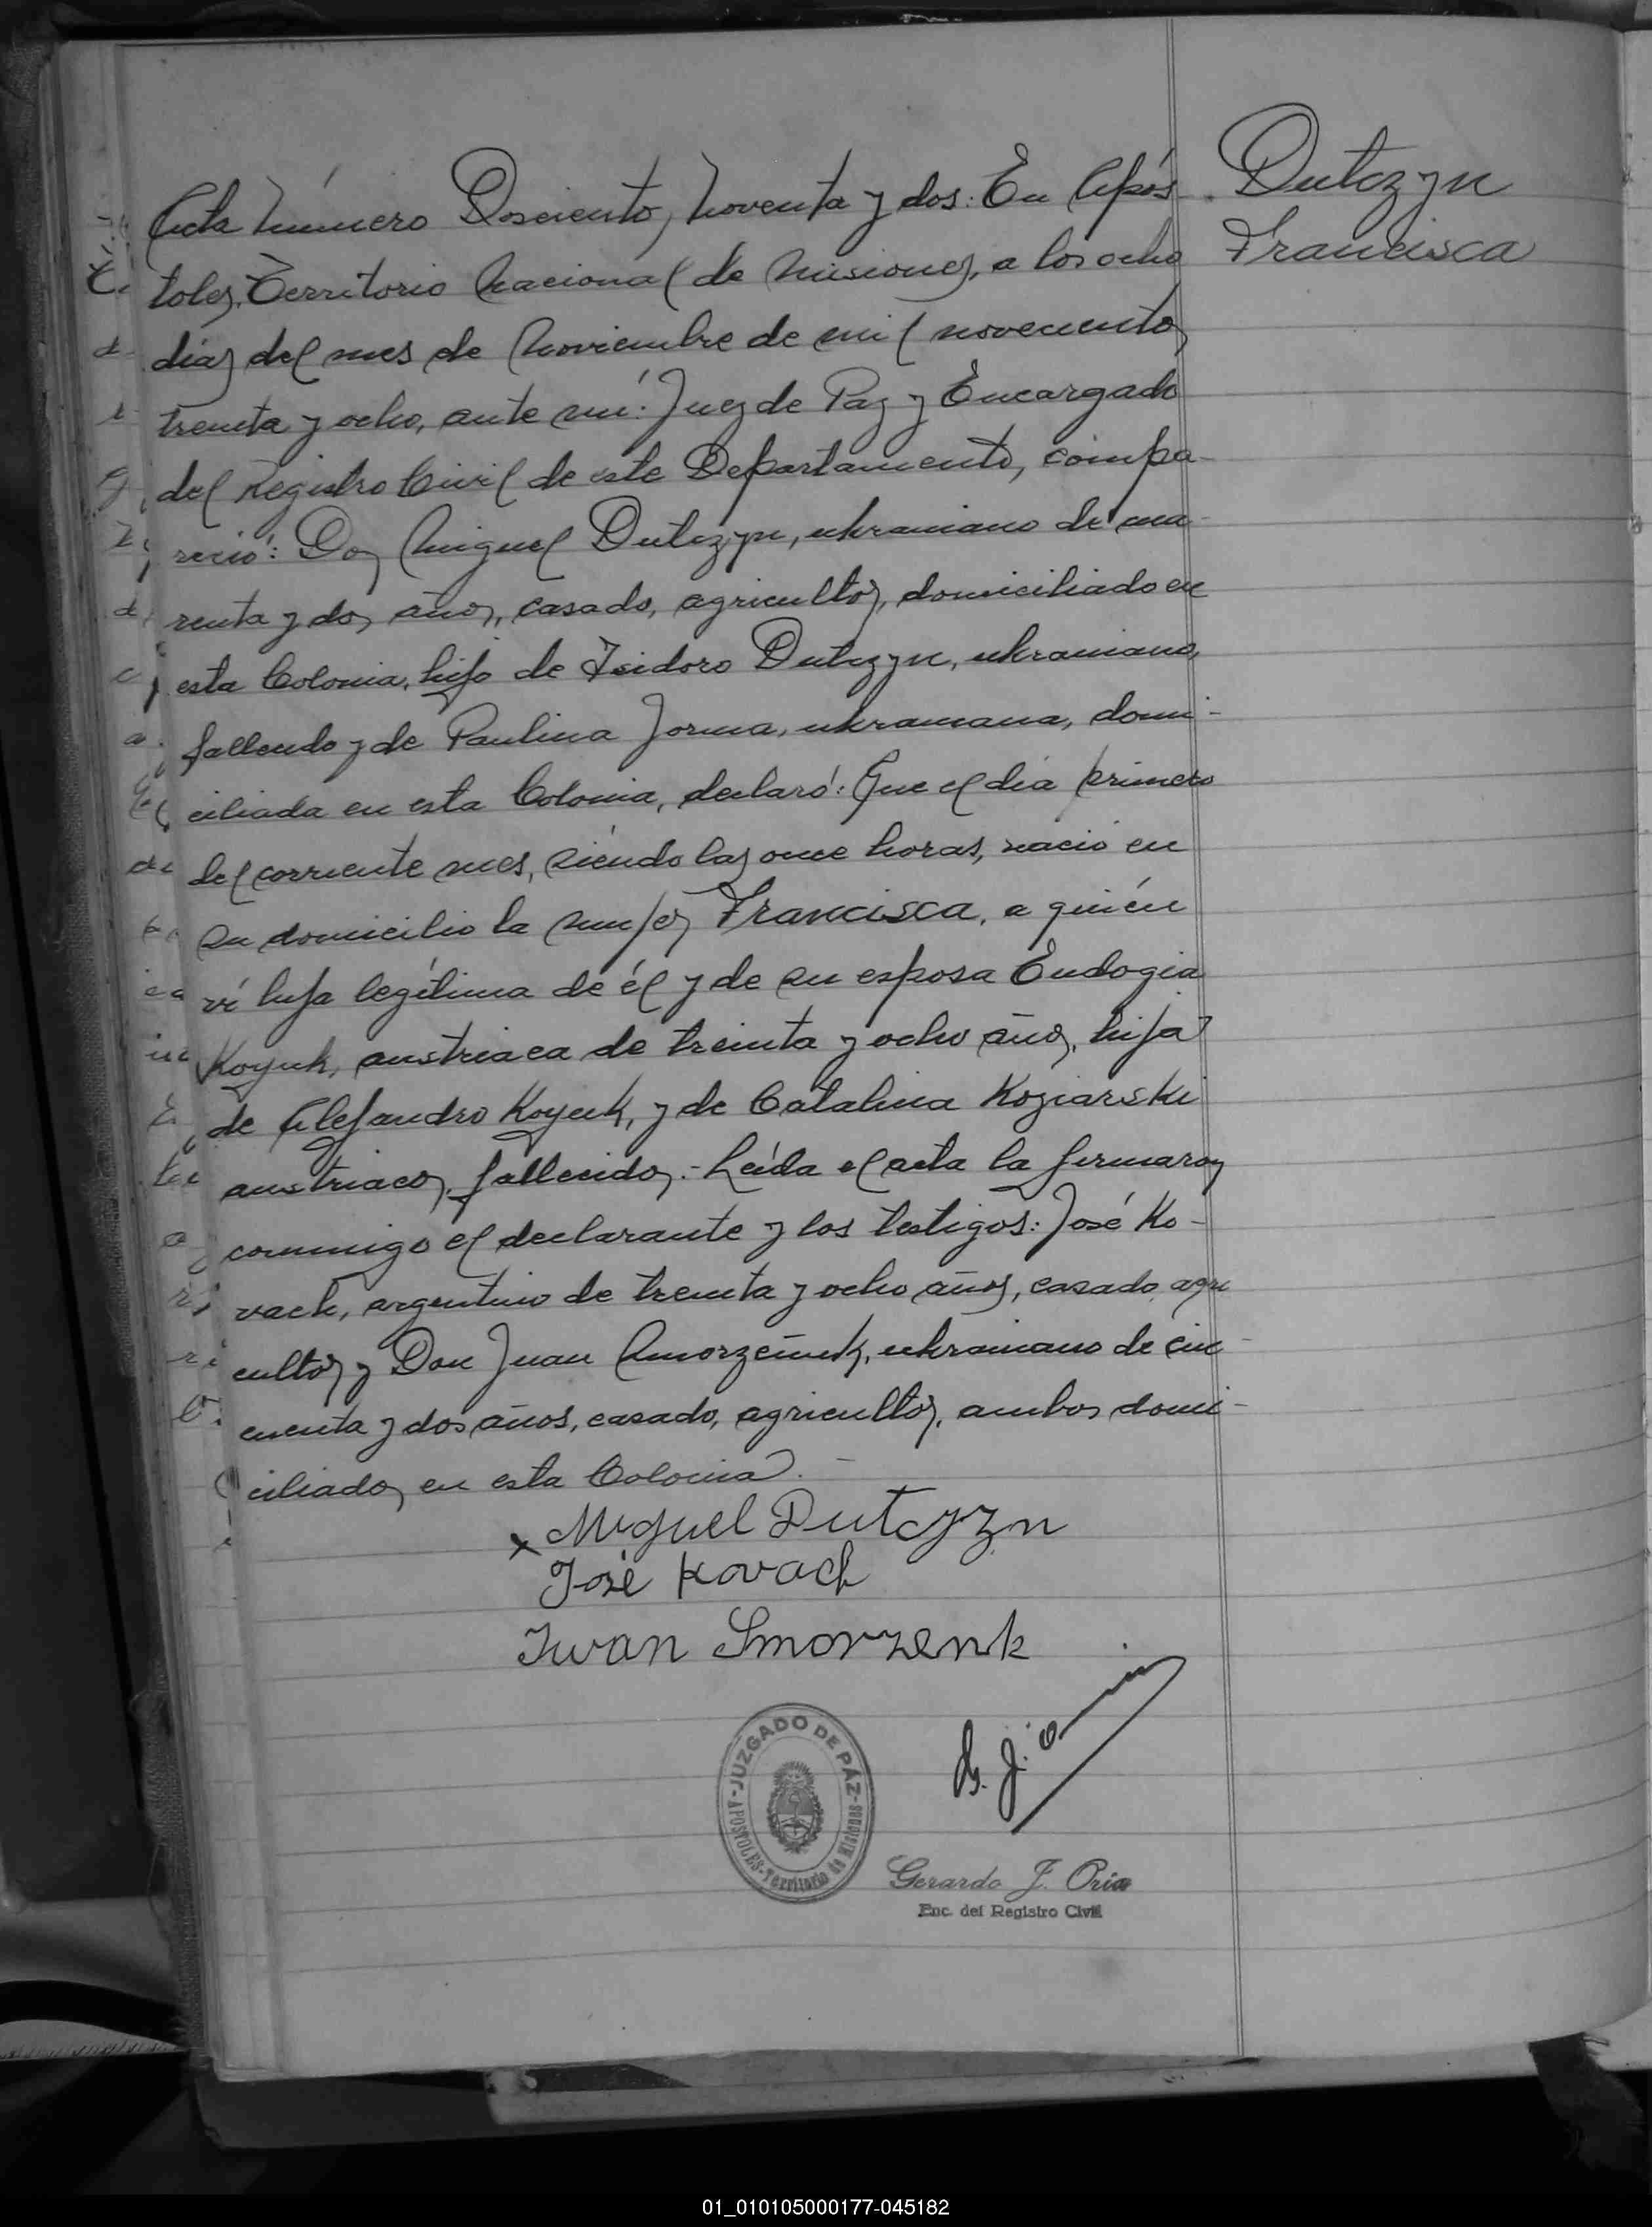 Dutczyn
Francisca
Acta Número Doscientos noventa y dos: En Após-
toles, Territorio Nacional de Misiones, a los ocho
días del mes de Noviembre de mil novecientos
treinta y ocho, ante mí: Juez de Paz y Encargado
del Registro Civil de este Departamento, compa-
reció: Don Miguel Dutczyn, ukraniano de cua-
renta y dos años, casado, agricultor, domiciliado en
esta Colonia, hijo de Isidoro Dutczyn, ukraniano,
fallecido y de Paulina Jorma, ukraniana, domi-
ciliada en esta Colonia, declaró: Que el día primero
del corriente mes, siendo las once horas, nació en
su domicilio la mujer Francisca, a quién
ví hija legítima de él y de su esposa Eudogia
Koyuk, austriaca de treinta y ocho años, hija
de Alejandro Koyuk, y de Catalina Koziarski
austriacos, fallecidos.- Leída el acta la firmaron
conmigo el declarante y los testigos: José Ko-
vach, argentino de treinta y ocho años, casado, agri
cultor y Don Juan Smorzeñuk, ukraniano de cin-
cuenta y dos años, casado, agricultor, ambos domi-
ciliados en esta Colonia.-
x Miguel Dutcyzn
José Kovach
Iwan Smorzenk
JUZGADO DE PÁZ
APOSTOLES-Territorio de Misiones
Gerardo J. Oria
Enc. del Registro Civil
01_010105000177-045182